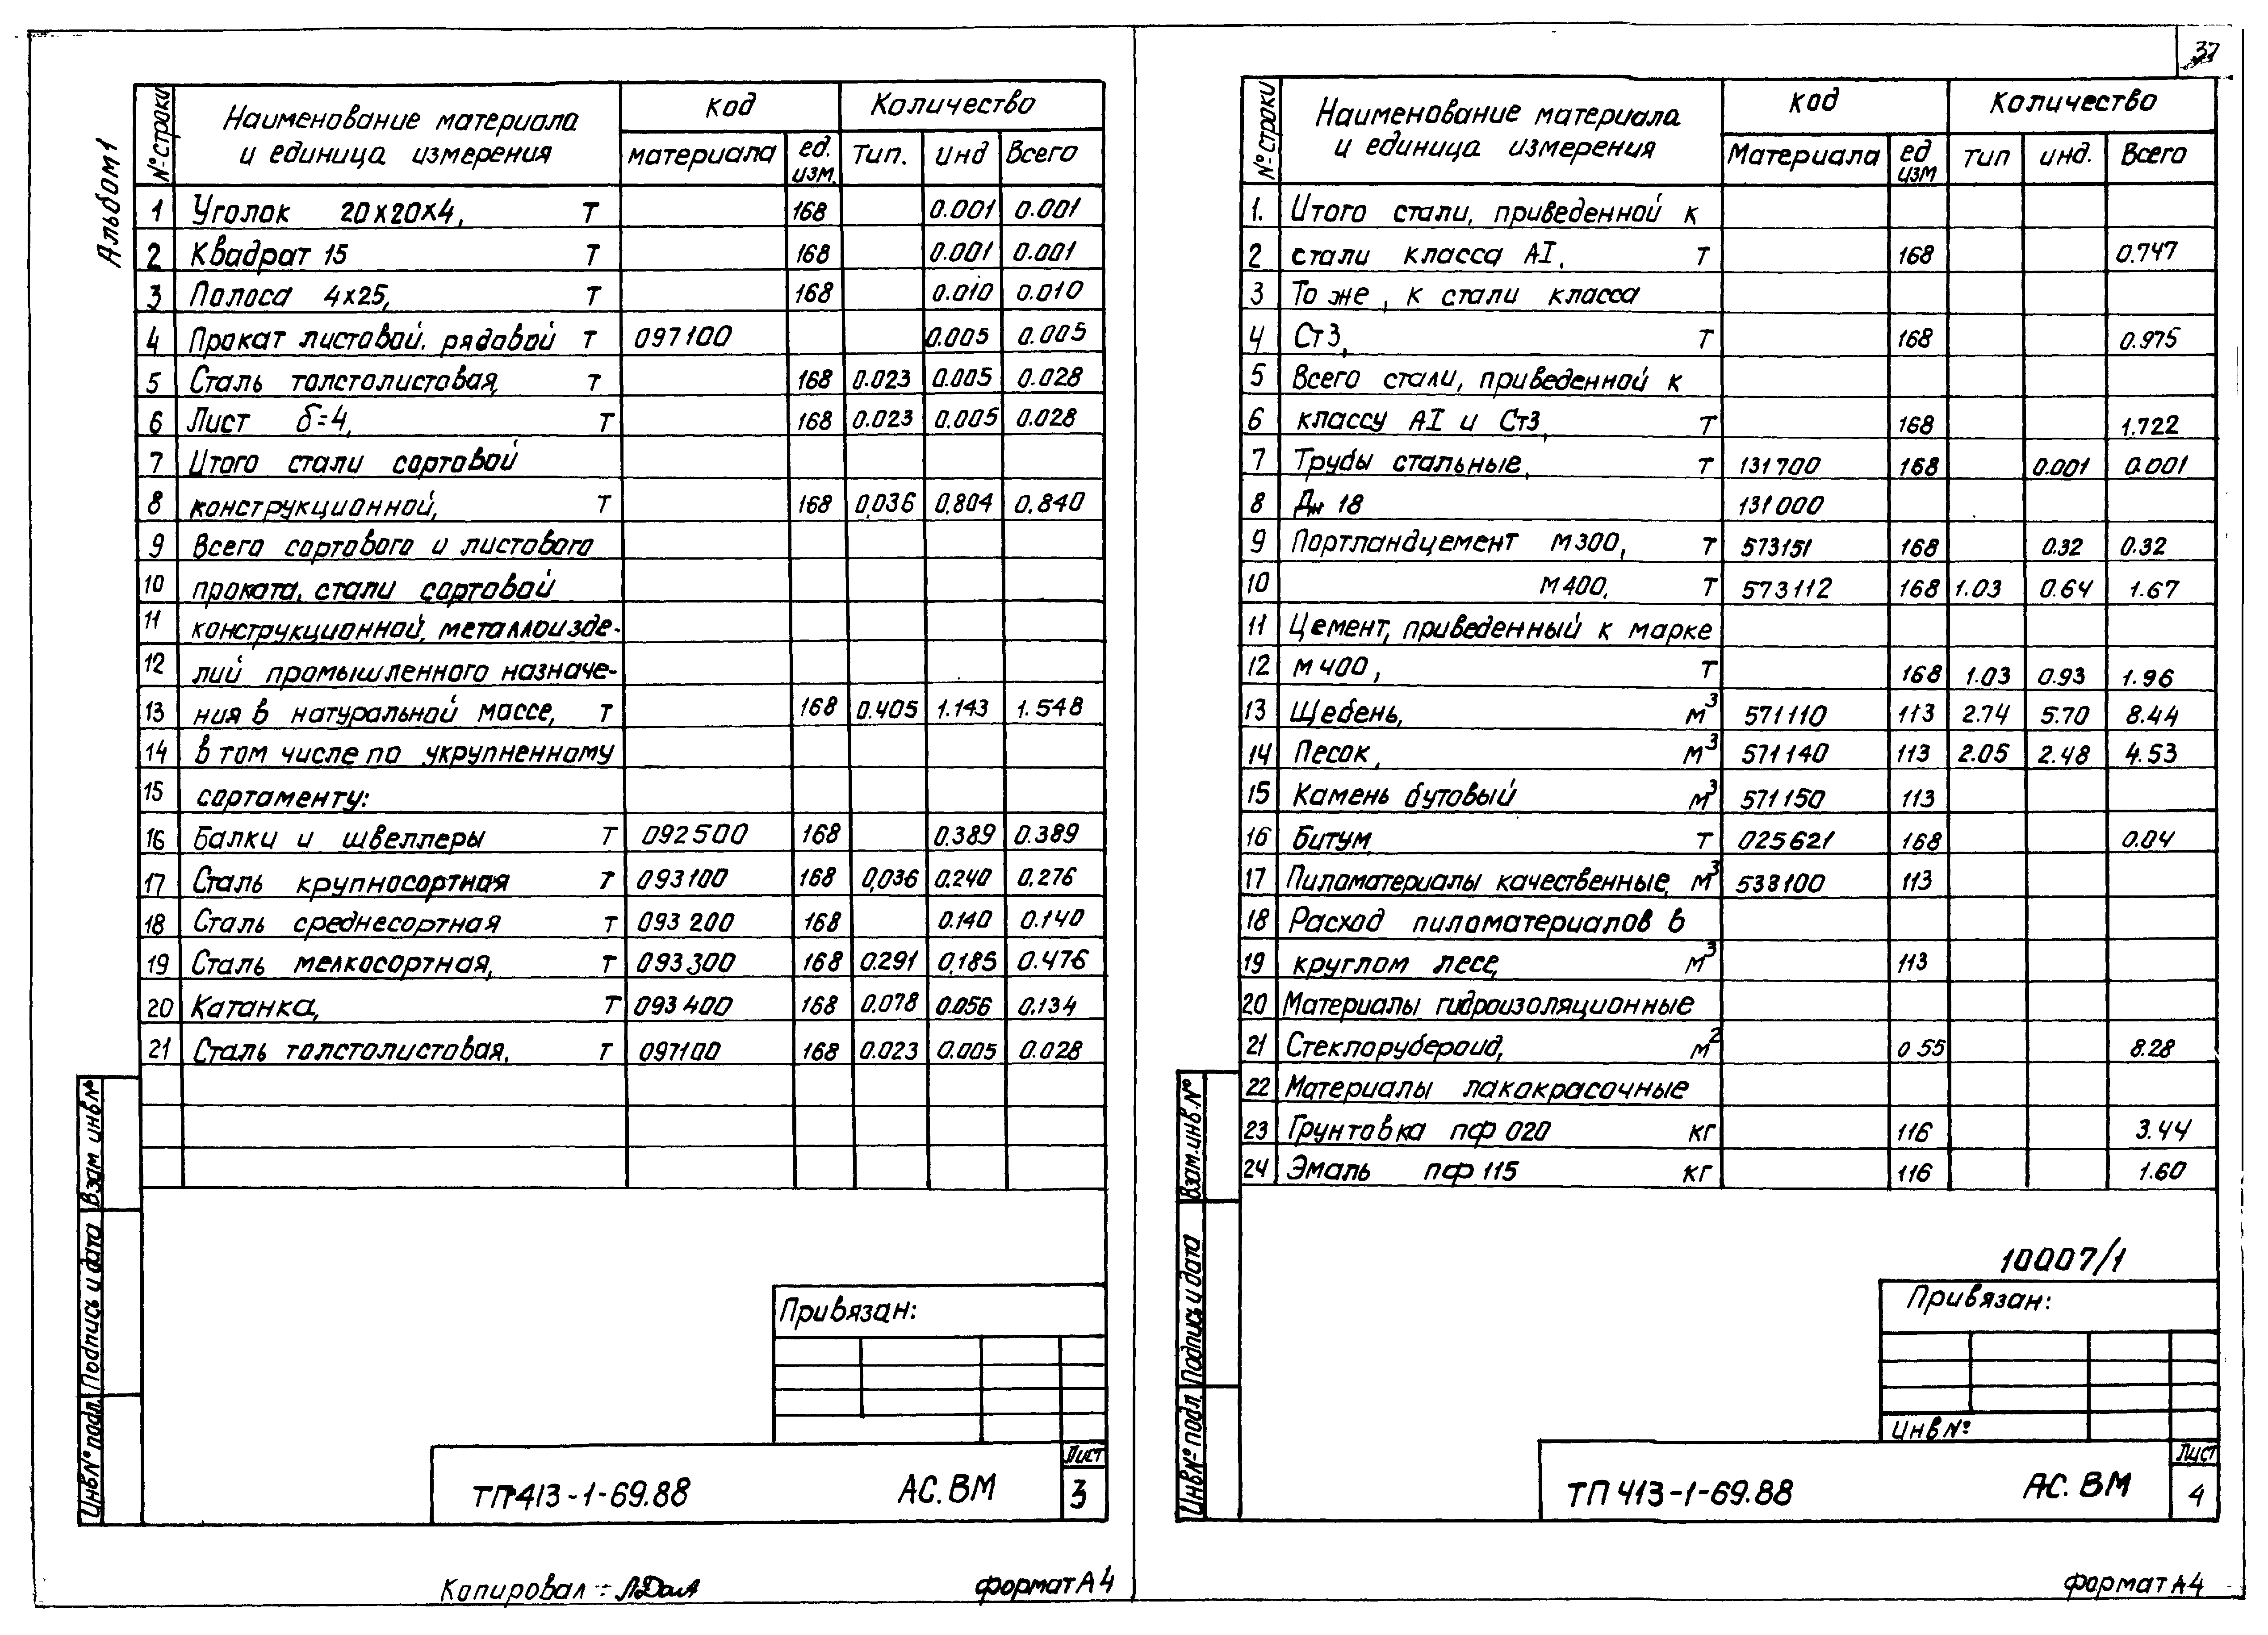 37
Альбом 1
№ строки
Наименование материала и единица измерения
Код
Количество
материала
ед. изм.
Тип.
инд
Всего
1 Уголок 20х20х4, т 168 0.001 0.001
2 Квадрат 15 т 168 0.001 0.001
3 Полоса 4х25, т 168 0.010 0.010
4 Прокат листовой. рядовой т 097100 0.005 0.005
5 Сталь толстолистовая, т 168 0.023 0.005 0.028
6 Лист δ=4, т 168 0.023 0.005 0.028
7 Итого стали сортовой
8 конструкционной, т 168 0,036 0,804 0.840
9 Всего сортового и листового
10 проката, стали сортовой
11 конструкционной, металлоизде-
12 лий промышленного назначе-
13 ния в натуральной массе, т 168 0.405 1.143 1.548
14 в том числе по укрупненному
15 сортаменту:
16 Балки и швеллеры т 092500 168 0.389 0.389
17 Сталь крупносортная т 093100 168 0,036 0.240 0.276
18 Сталь среднесортная т 093200 168 0.140 0.140
19 Сталь мелкосортная, т 093300 168 0.291 0,185 0.476
20 Катанка, т 093400 168 0.078 0.056 0.134
21 Сталь толстолистовая, т 097100 168 0.023 0.005 0.028
Взам инв №
Подпись и дата
Инв № подл.
Привязан:
ТП 413-1-69.88
АС. ВМ
Лист
3
Копировал -
формат А4
№ строки
Наименование материала и единица измерения
Код
Количество
Материала
ед изм
тип
инд.
Всего
1. Итого стали, приведенной к
2 стали класса АI, т 168 0.747
3 То же, к стали класса
4 Ст3, т 168 0.975
5 Всего стали, приведенной к
6 классу АI и Ст3, т 168 1.722
7 Трубы стальные, т 131700 168 0.001 0.001
8 Дн 18 131000
9 Портландцемент М300, т 573151 168 0.32 0.32
10 М400, т 573112 168 1.03 0.64 1.67
11 Цемент, приведенный к марке
12 М400, т 168 1.03 0.93 1.96
13 Щебень, м³ 571110 113 2.74 5.70 8.44
14 Песок, м³ 571140 113 2.05 2.48 4.53
15 Камень бутовый м³ 571150 113
16 Битум т 025621 168 0.04
17 Пиломатериалы качественные, м³ 538100 113
18 Расход пиломатериалов в
19 круглом лесе, м³ 113
20 Материалы гидроизоляционные
21 Стеклорубероид, м² 055 8.28
22 Материалы лакокрасочные
23 Грунтовка пф 020 кг 116 3.44
24 Эмаль пф 115 кг 116 1.60
Взам.инв.№
Подпись и дата
Инв № подл.
10007/1
Привязан:
Инв №
ТП 413-1-69.88
АС. ВМ
Лист
4
формат А4